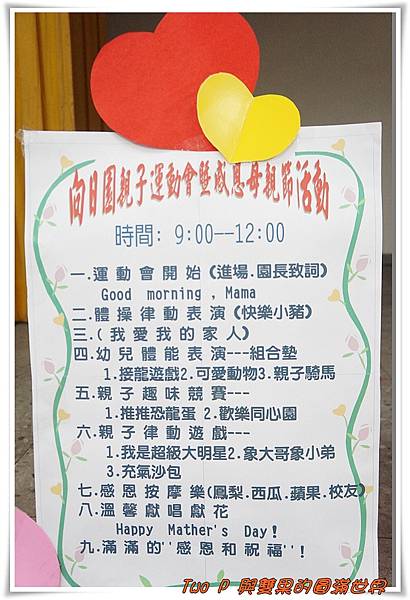 向日園親子運動會暨感恩母親節活動
時間: 9:00--12:00
一.運動會開始(進場.園長致詞)
Good morning , Mama
二.體操律動表演(快樂小豬)
三.(我愛我的家人)
四.幼兒體能表演---組合墊
1.接龍遊戲2.可愛動物3.親子騎馬
五.親子趣味競賽---
1.推推恐龍蛋 2.歡樂同心園
六.親子律動遊戲---
1.我是超級大明星2.象大哥象小弟
3.充氣沙包
七.感恩按摩樂(鳳梨.西瓜.蘋果.校友)
八.溫馨獻唱獻花
Happy Mother's Day!
九.滿滿的"感恩和祝福"!
Tuo P 與雙果的圓滿世界